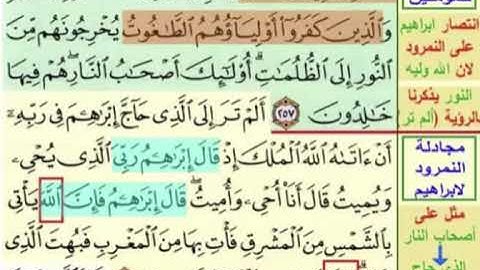 وَٱلَّذِينَ كَفَرُوٓا۟ أَوْلِيَآؤُهُمُ ٱلطَّٰغُوتُ يُخْرِجُونَهُم مِّنَ
ٱلنُّورِ إِلَى ٱلظُّلُمَٰتِ ۗ أُو۟لَٰٓئِكَ أَصْحَٰبُ ٱلنَّارِ ۖ هُمْ فِيهَا
خَٰلِدُونَ ٢٥٧ أَلَمْ تَرَ إِلَى ٱلَّذِى حَآجَّ إِبْرَٰهِۦمَ فِى رَبِّهِۦٓ
أَنْ ءَاتَىٰهُ ٱللَّهُ ٱلْمُلْكَ إِذْ قَالَ إِبْرَٰهِۦمُ رَبِّىَ ٱلَّذِى يُحْىِۦ
وَيُمِيتُ قَالَ أَنَا۠ أُحْىِۦ وَأُمِيتُ ۖ قَالَ إِبْرَٰهِۦمُ فَإِنَّ ٱللَّهَ يَأْتِى
بِٱلشَّمْسِ مِنَ ٱلْمَشْرِقِ فَأْتِ بِهَا مِنَ ٱلْمَغْرِبِ فَبُهِتَ ٱلَّذِى
انتصار ابراهيم
على النمرود
لان الله وليه
النور يذكرنا
بالرؤية (ألم تر)
مجادلة
النمرود
لابراهيم
مثل على
أصحاب النار
الذي حاج